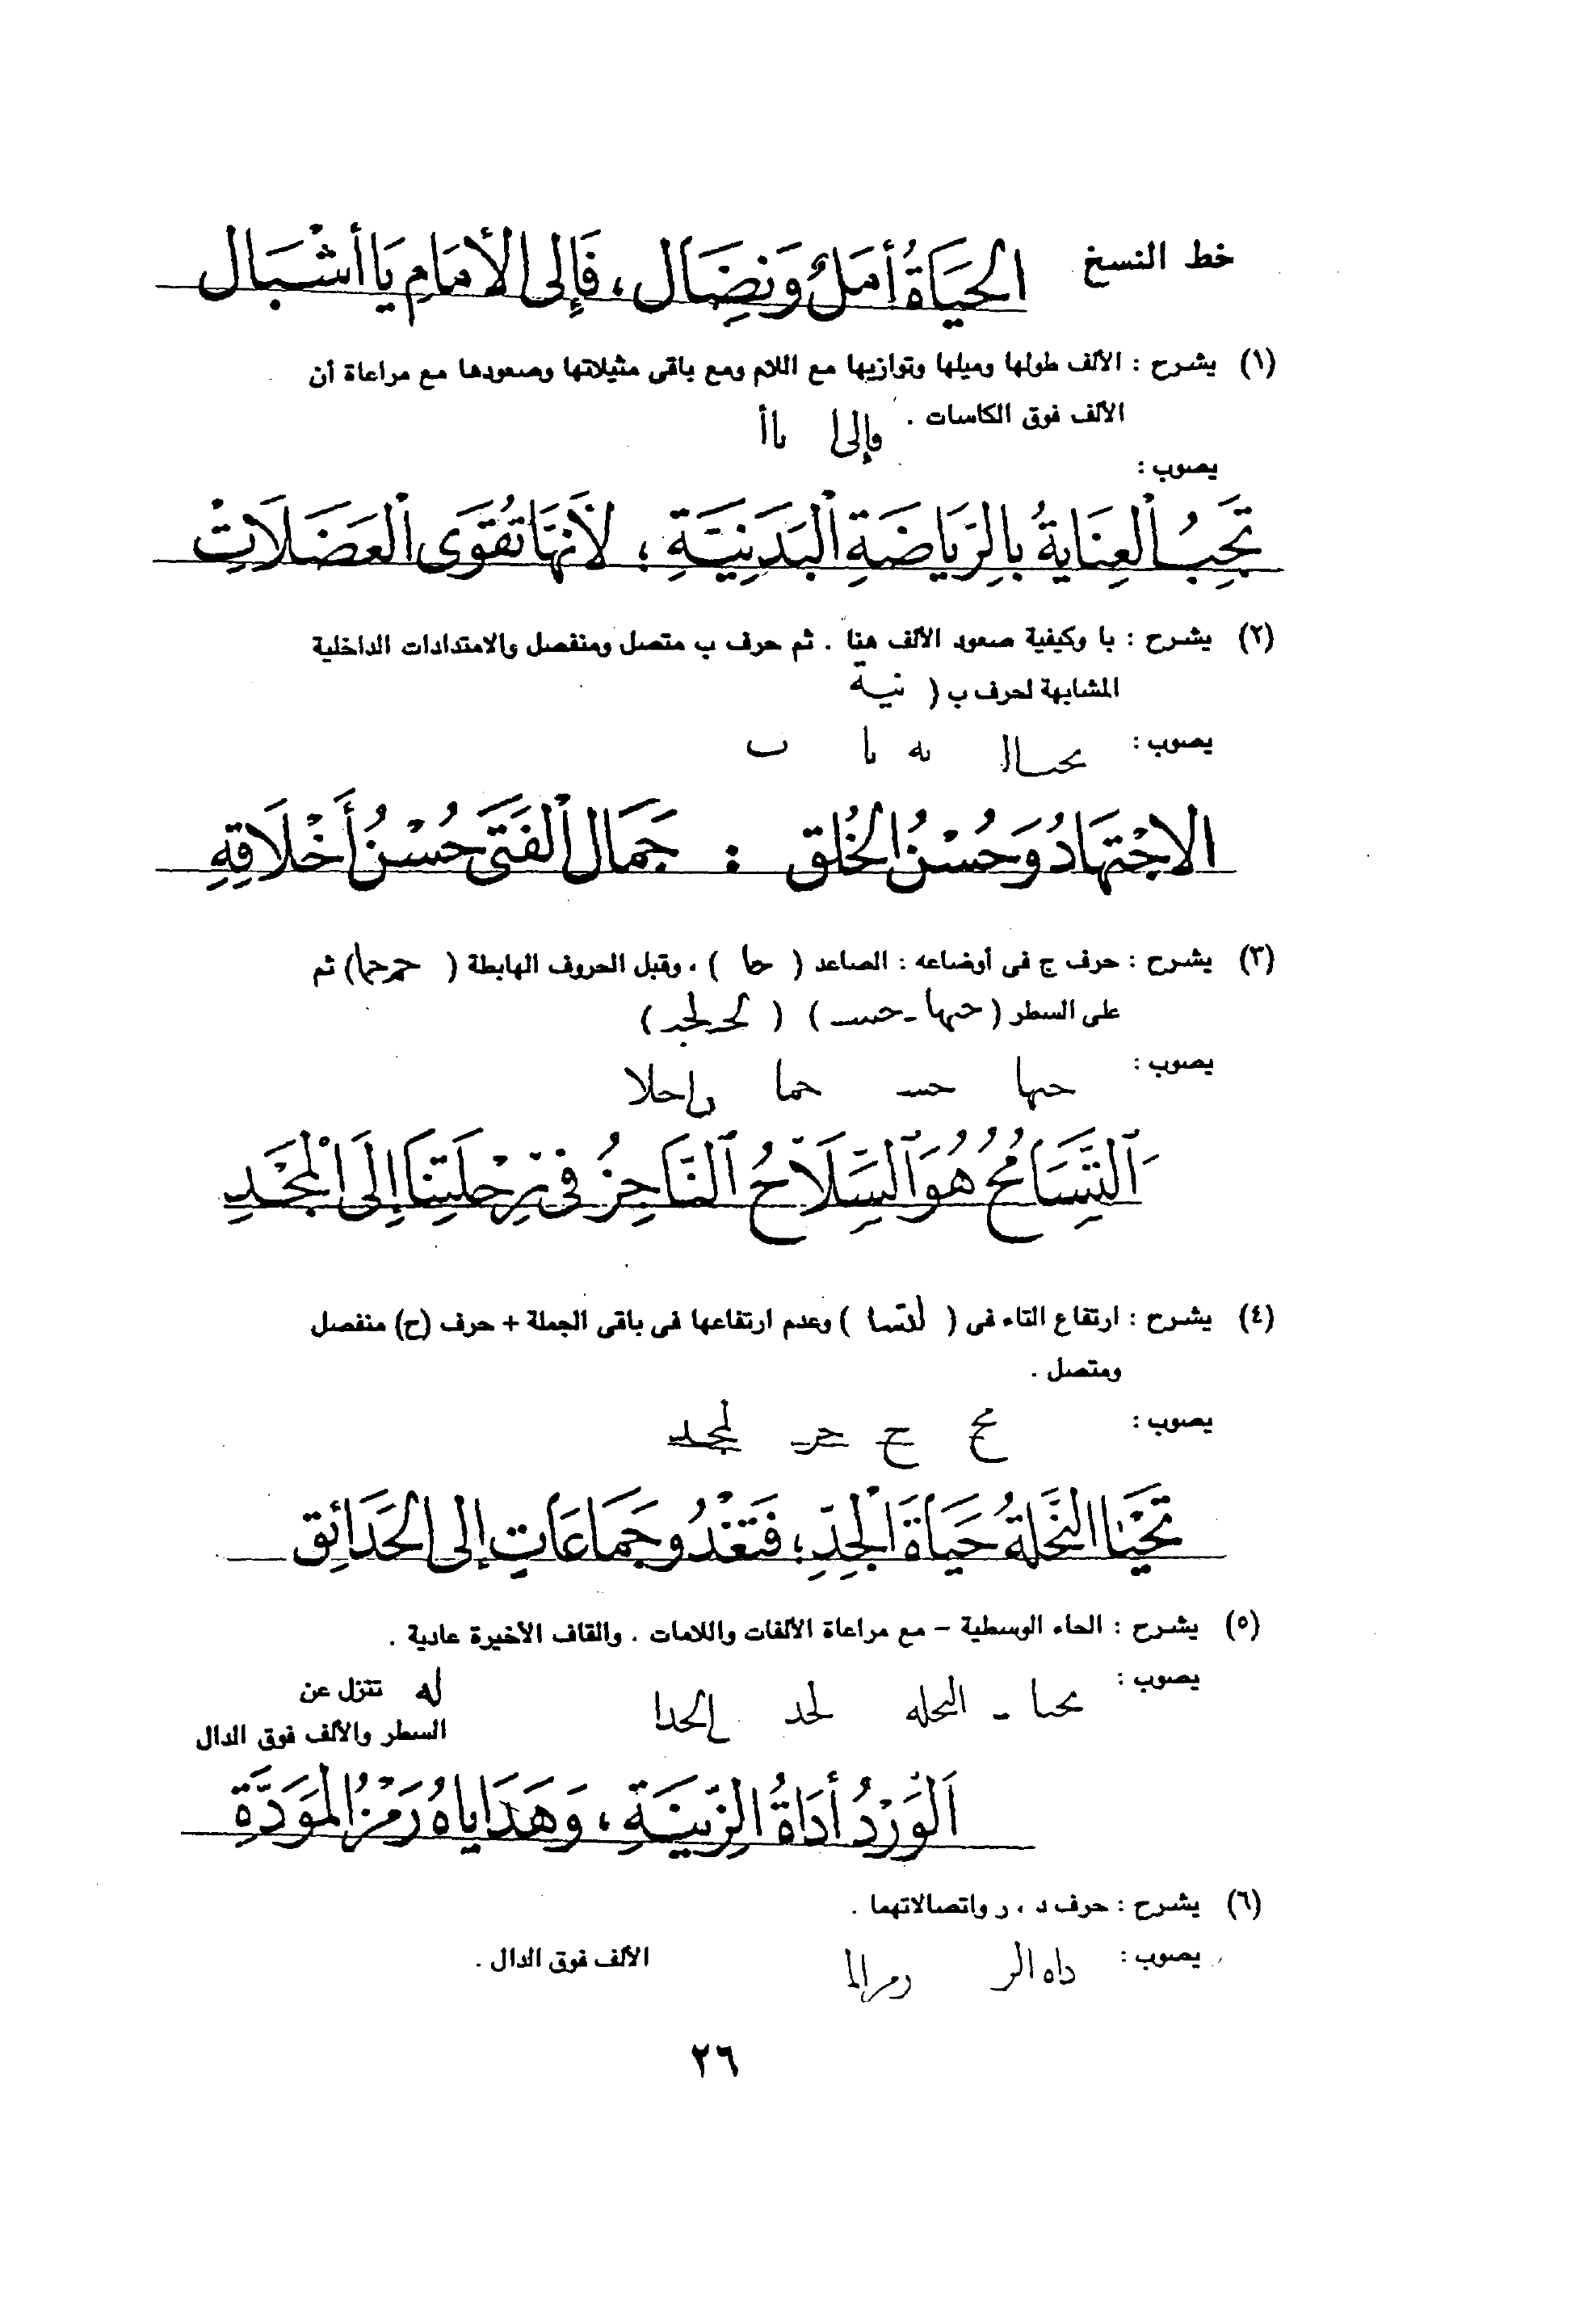 خط النسخ
الحَيَاةُ أمَلٌ وَنِضَال ، فَإِلى الأمَامِ يَا أشْبَال
(١) يشرح : الألف طولها وميلها وتوازيها مع اللام ومع باقى مثيلاتها وصعودها مع مراعاة أن
الألف فوق الكاسات . فإلى اأ
يصوب :
تَجِبُ الْعِنَايةُ بِالرِّيَاضَةِ الْبَدَنِيَّةِ ؛ لأَنهَّا تُقَوِى الْعَضَلَاتِ
(٢) يشرح : با وكيفية صعود الألف هنا . ثم حرف ب متصل ومنفصل والامتدادات الداخلية
المشابهة لحرف ب ( نيـة
يصوب :
الاجْتِهَادُ وَحُسْنُ الخُلُق : جَمَال الْفَتَى حُسْنُ أَخْلَاقِهِ
(٣) يشرح : حرف ج فى أوضاعه : الصاعد ( حا ) ، وقبل الحروف الهابطة ( ) ثم
على السطر ( ) ( )
يصوب :
اَلتَّسَامُحُ هُوَ اَلسِّلَاحُ اَلنَّاجِزُ فِى رِحْلَتِنَا إِلَى الْمَجْدِ
(٤) يشرح : ارتفاع التاء فى ( لتسا ) وعدم ارتفاعها فى باقى الجملة + حرف (ح) منفصل
ومتصل .
يصوب : مح ح حر لمجد
تَحْيَا النَّخلَةُ حَيَاةَ الْجِدِّ ؛ فَتَغْدُو جَمَاعَاتٍ إلى الحَدَائِق
(٥) يشرح : الحاء الوسطية – مع مراعاة الألفات واللامات . والقاف الأخيرة عادية .
يصوب :
له تتزل عن
السطر والألف فوق الدال
اَلوَرْدُ أدَاةُ الزِّينَةِ ، وَهَدَاياهُ رَمْزُ المَوَدَّةِ
(٦) يشرح : حرف د ، ر واتصالاتهما .
يصوب : داه الر رمر الما الألف فوق الدال .
٢٦